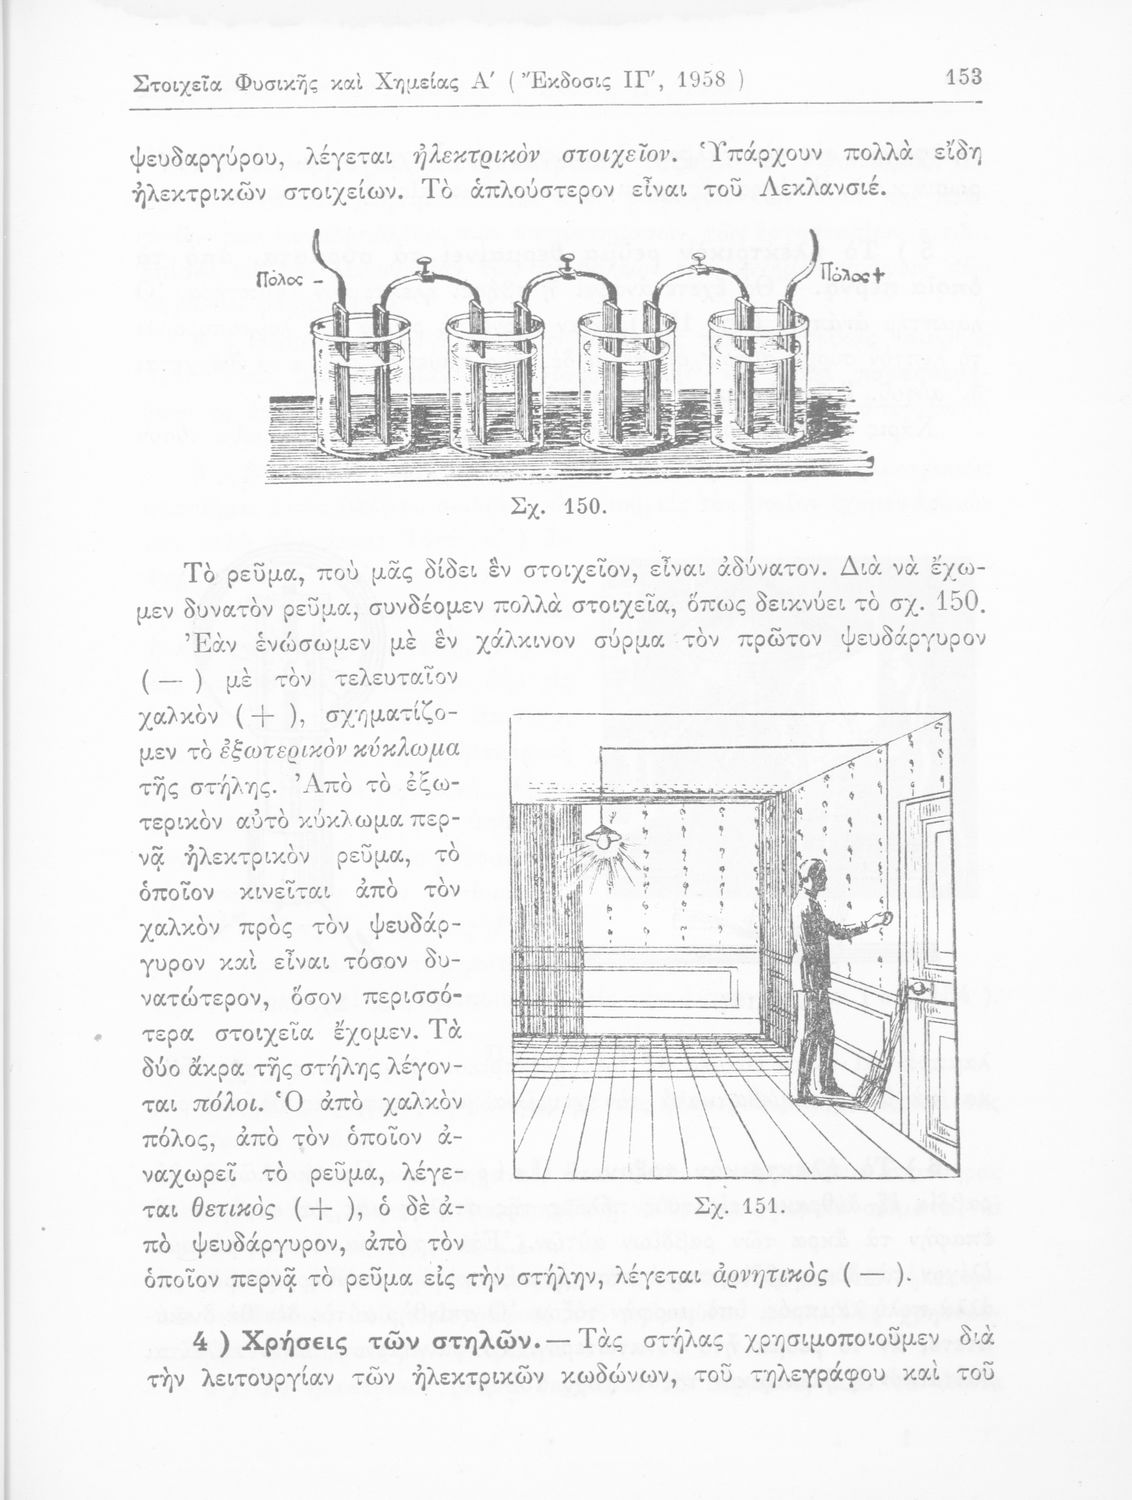 Στοιχεῖα Φυσικῆς καὶ Χημείας Α′ ( Ἔκδοσις ΙΓ′, 1958 ) 153
ψευδαργύρου, λέγεται ἠλεκτρικὸν στοιχεῖον. Ὑπάρχουν πολλὰ εἴδη
ἠλεκτρικῶν στοιχείων. Τὸ ἁπλούστερον εἶναι τοῦ Λεκλανσιέ.
Πόλος – Πόλος +
Σχ. 150.
Τὸ ρεῦμα, ποὺ μᾶς δίδει ἓν στοιχεῖον, εἶναι ἀδύνατον. Διὰ νὰ ἔχω-
μεν δυνατὸν ρεῦμα, συνδέομεν πολλὰ στοιχεῖα, ὅπως δεικνύει τὸ σχ. 150.
Ἐὰν ἑνώσωμεν μὲ ἓν χάλκινον σύρμα τὸν πρῶτον ψευδάργυρον
( — ) μὲ τὸν τελευταῖον
χαλκὸν ( + ), σχηματίζο-
μεν τὸ ἐξωτερικὸν κύκλωμα
τῆς στήλης. Ἀπὸ τὸ ἐξω-
τερικὸν αὐτὸ κύκλωμα περ-
νᾷ ἠλεκτρικὸν ρεῦμα, τὸ
ὁποῖον κινεῖται ἀπὸ τὸν
χαλκὸν πρὸς τὸν ψευδάρ-
γυρον καὶ εἶναι τόσον δυ-
νατώτερον, ὅσον περισσό-
τερα στοιχεῖα ἔχομεν. Τὰ
δύο ἄκρα τῆς στήλης λέγον-
ται πόλοι. Ὁ ἀπὸ χαλκὸν
πόλος, ἀπὸ τὸν ὁποῖον ἀ-
ναχωρεῖ τὸ ρεῦμα, λέγε-
ται θετικὸς ( + ), ὁ δὲ ἀ-
πὸ ψευδάργυρον, ἀπὸ τὸν
ὁποῖον περνᾷ τὸ ρεῦμα εἰς τὴν στήλην, λέγεται ἀρνητικὸς ( — ).
Σχ. 151.
4 ) Χρήσεις τῶν στηλῶν. — Τὰς στήλας χρησιμοποιοῦμεν διὰ
τὴν λειτουργίαν τῶν ἠλεκτρικῶν κωδώνων, τοῦ τηλεγράφου καὶ τοῦ